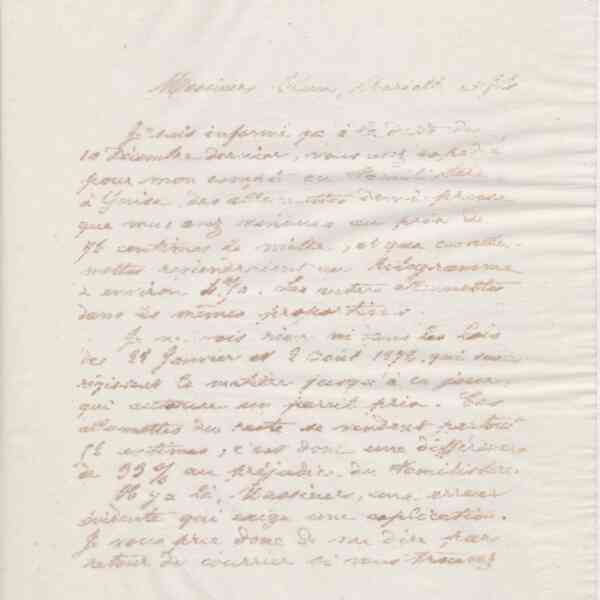 Messieurs et fils
Je suis informé qu'à la date du
10 Décembre dernier, vous avez expédié
pour mon compte au Familistère
à Guise des allumettes demi-presse
que vous avez au prix de
76 centimes le mille, et que ces allu-
mettes reviendraient au kilogramme
à environ Les autres allumettes
dans les mêmes proportions.
Je ne vois rien ni dans les lois
des 28 Janvier et 2 Août 1872, qui
régissent la matière jusqu'à ce jour,
qui autorise un pareil prix. Ces
allumettes du reste se vendent partout
centimes, c'est donc une différence
de 33 % au préjudice du Familistère.
Il y a là, Messieurs, une erreur
évidente qui exige une explication.
Je vous prie donc de me dire par
retour de courrier si vous trouvez